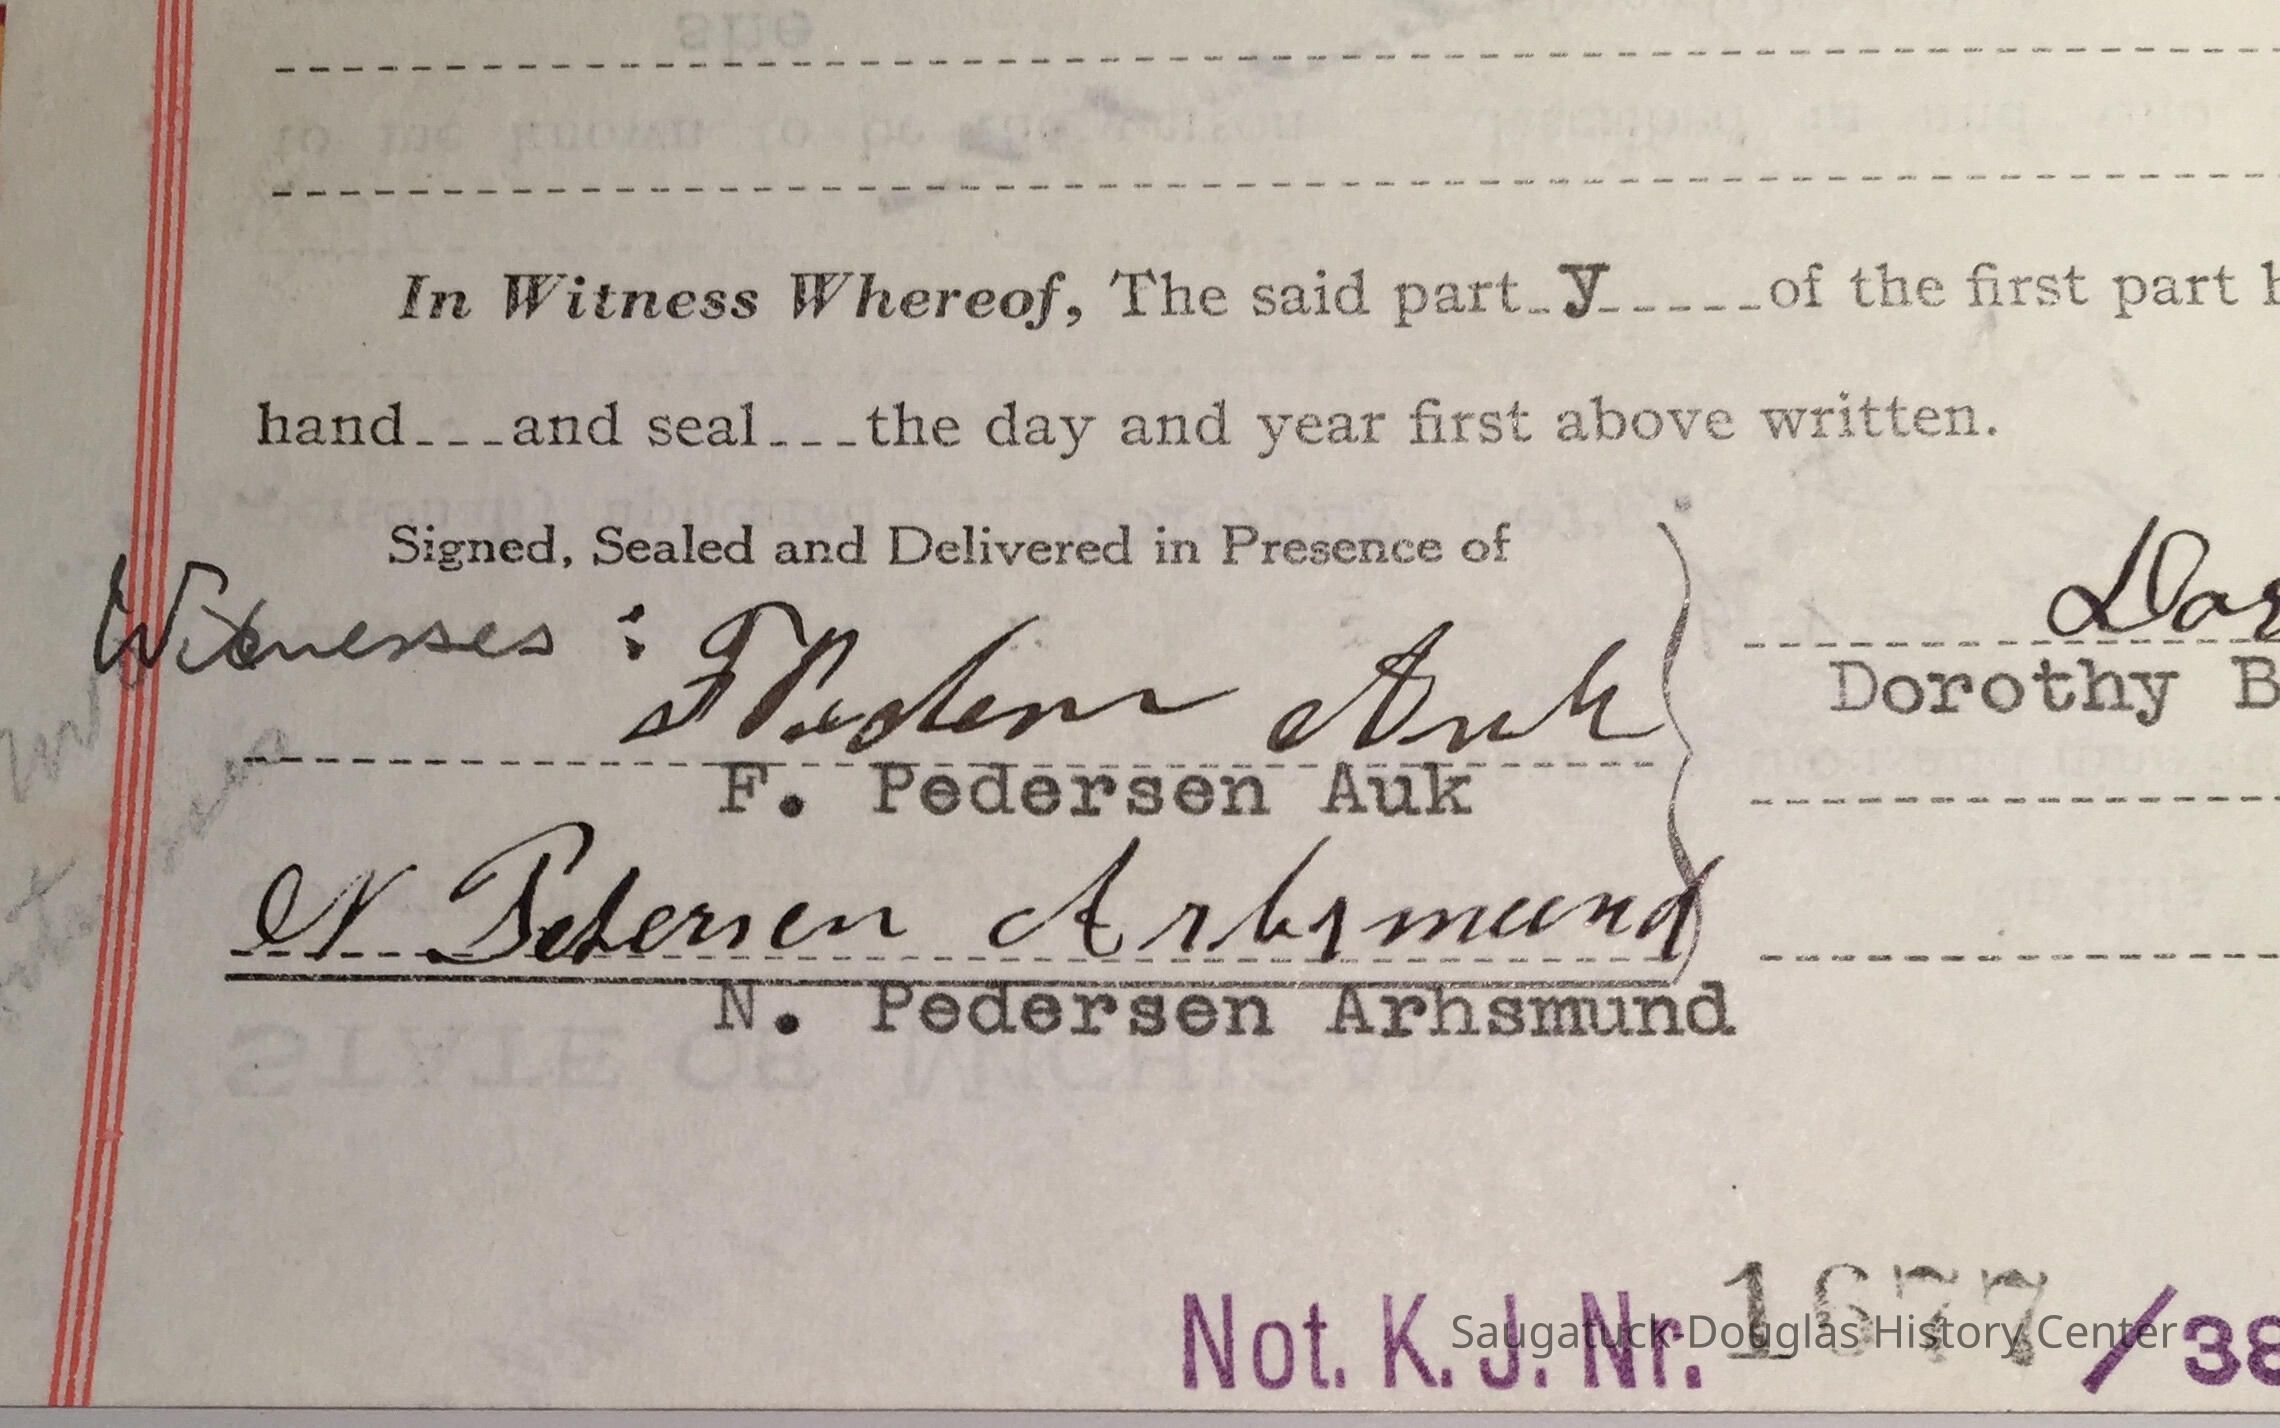 In Witness Whereof, The said part y of the first part
hand---and seal---the day and year first above written.
Signed, Sealed and Delivered in Presence of
Witnesses :
F Pedersen Auk
Dor
F. Pedersen Auk
Dorothy B
N Pedersen Arhsmund
N. Pedersen Arhsmund
STATE OF MICHIGAN
Not. K. J. Nr. 1677 /38
Saugatuck-Douglas History Center